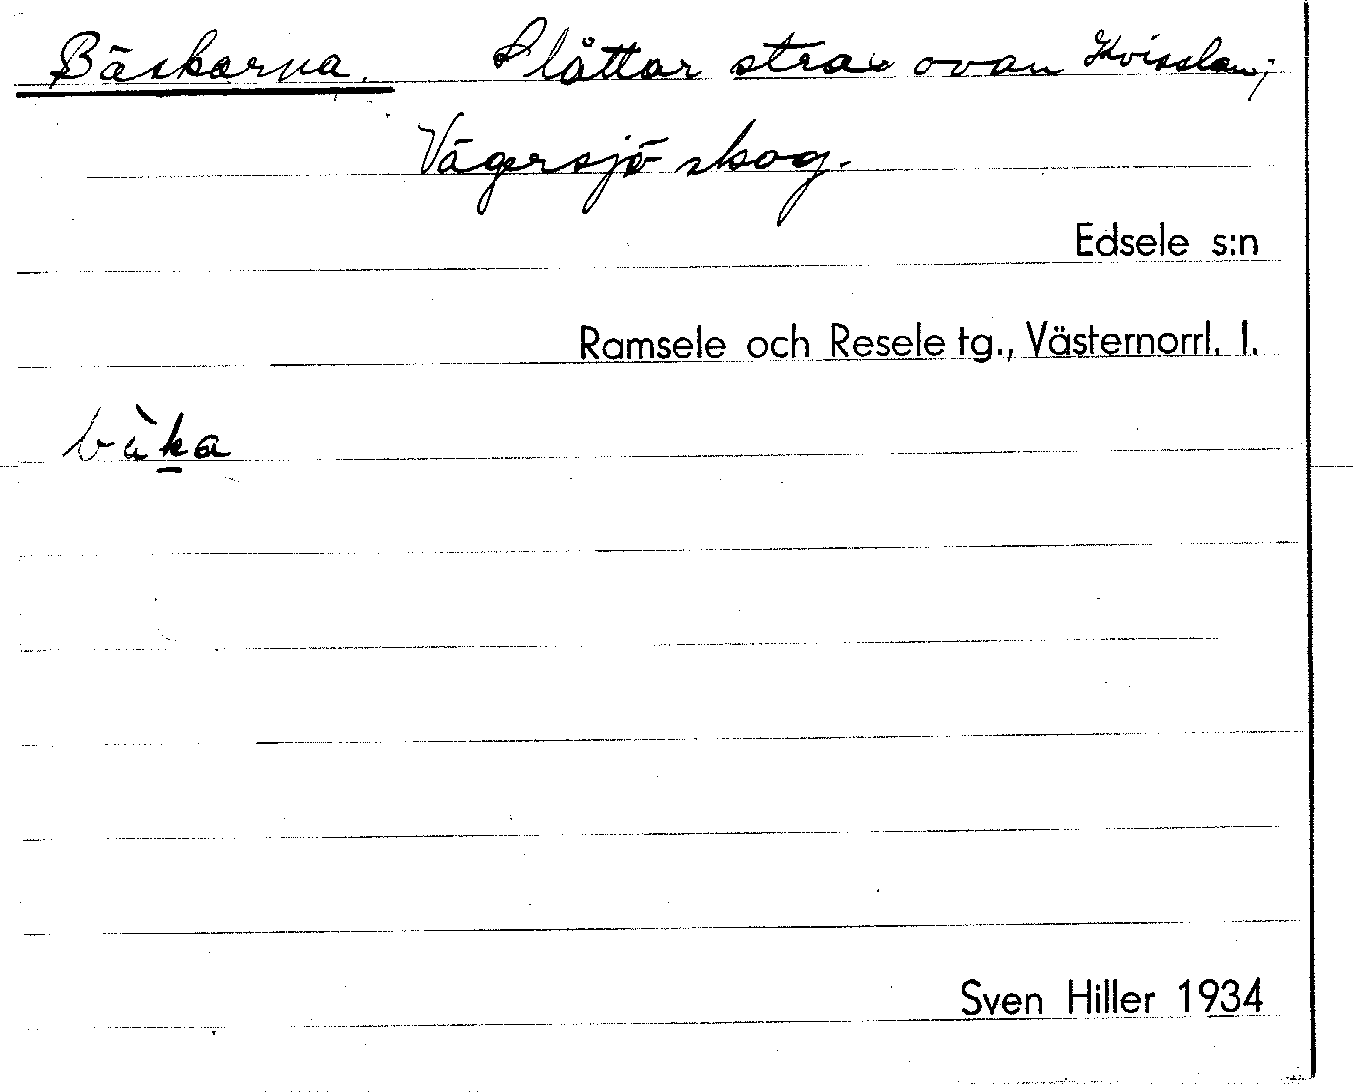 Bäckarna. Slåttar strax ovan Kvisslan;
Vägersjö skog.
Edsele s:n
Ramsele och Resele tg., Västernorrl. l.
Sven Hiller 1934